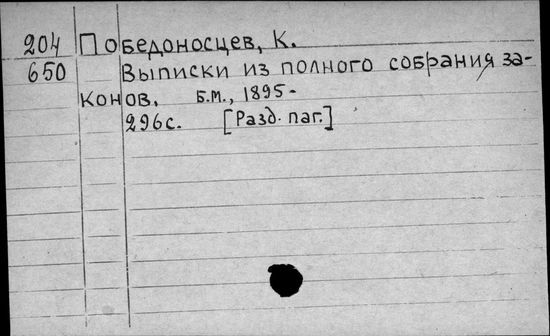 204 Победоносцев, К.
650 Выписки из полного собрания за-
конов. Б.м., 1895-
296с. [Разд. паг.]